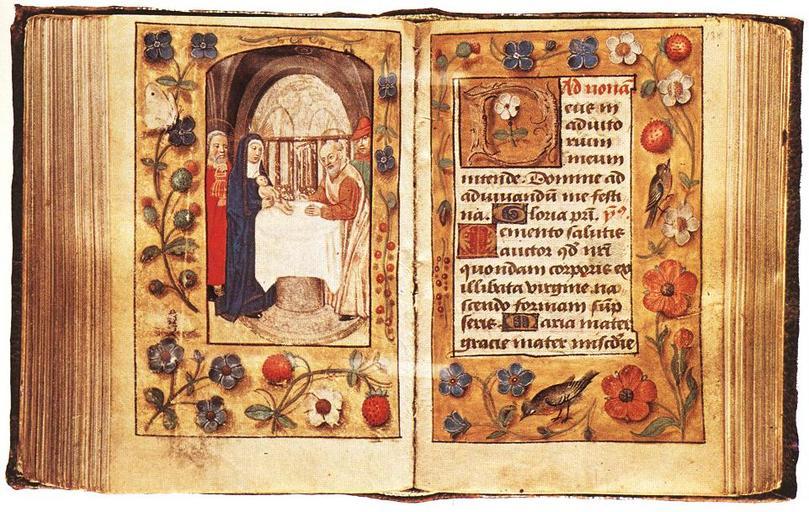 Ad nonā
Deus in
adiuto
rium
meum
intende. Domine ad
adiuuandū me festi
na. Gloria pr̄i. ꝯ
Memento salutis
auctor qd̄ nr̄i
quondam corporis ex
illibata virgine na
scendo formam sūp
seris. Maria mater
gracie mater misc̄die